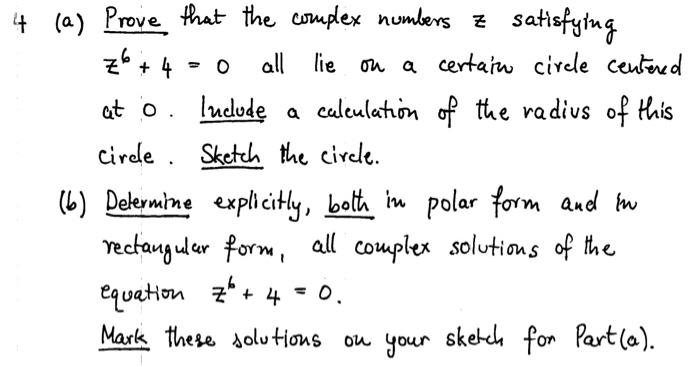 4 (a) Prove that the complex numbers z satisfying
z⁶ + 4 = 0 all lie on a certain circle centered
at 0. Include a calculation of the radius of this
circle. Sketch the circle.
(b) Determine explicitly, both in polar form and in
rectangular form, all complex solutions of the
equation z⁶ + 4 = 0.
Mark these solutions on your sketch for Part (a).